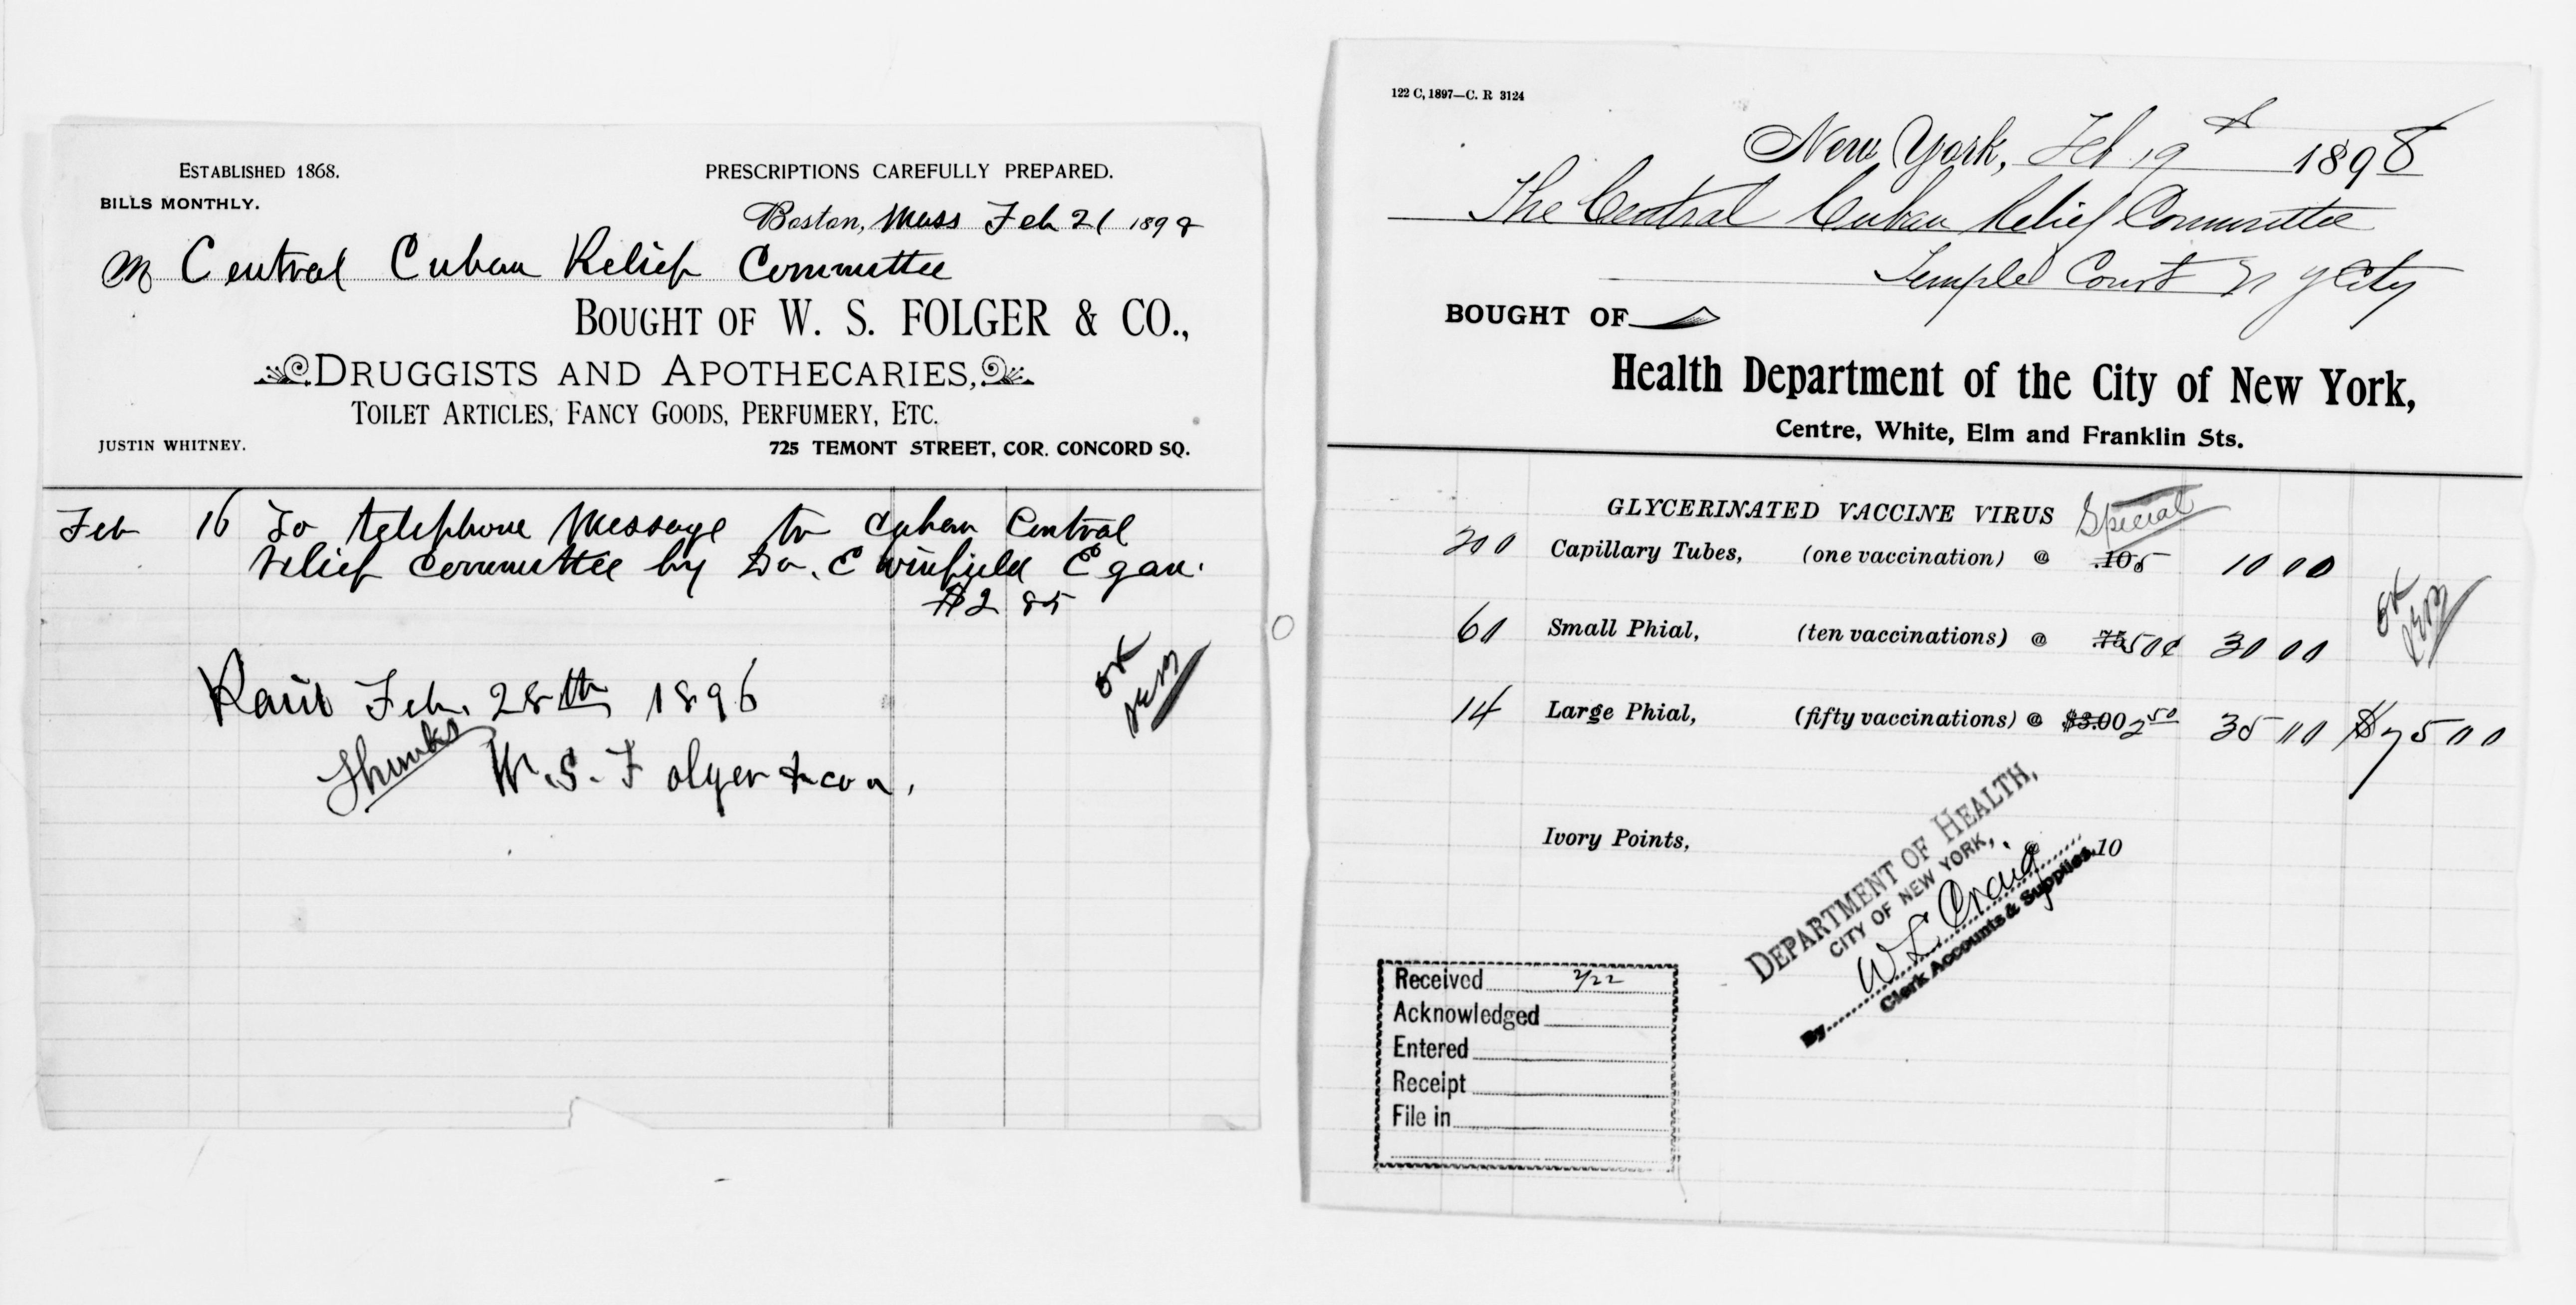 ESTABLISHED 1868.
PRESCRIPTIONS CAREFULLY PREPARED.
BILLS MONTHLY.
Boston, Mass Feb 21 1898
M Central Cuban Relief Committee
BOUGHT OF W. S. FOLGER & CO.,
DRUGGISTS AND APOTHECARIES,
TOILET ARTICLES, FANCY GOODS, PERFUMERY, ETC.
JUSTIN WHITNEY.
725 TEMONT STREET, COR. CONCORD SQ.
Feb 16 To telephone Message to Cuban Central
relief committee by Dr. E Winfield Egan.
$2 85
OK
Paid Feb. 28th 1898
Thanks
W. S. Folger & co.
122 C, 1897—C. R 3124
New York, Feb 19th 1898
The Central Cuban Relief Committee
Temple Court N Y City
BOUGHT OF
Health Department of the City of New York,
Centre, White, Elm and Franklin Sts.
GLYCERINATED VACCINE VIRUS Special
200 Capillary Tubes, (one vaccination) @ .10 5 10 00
OK
60 Small Phial, (ten vaccinations) @ .75 50¢ 30 00
14 Large Phial, (fifty vaccinations) @ $3.00 2 50 35 00 $75 00
Ivory Points, @ .10
DEPARTMENT OF HEALTH,
CITY OF NEW YORK,
By W L Craig
Clerk Accounts & Supplies.
Received 2/22
Acknowledged
Entered
Receipt
File in